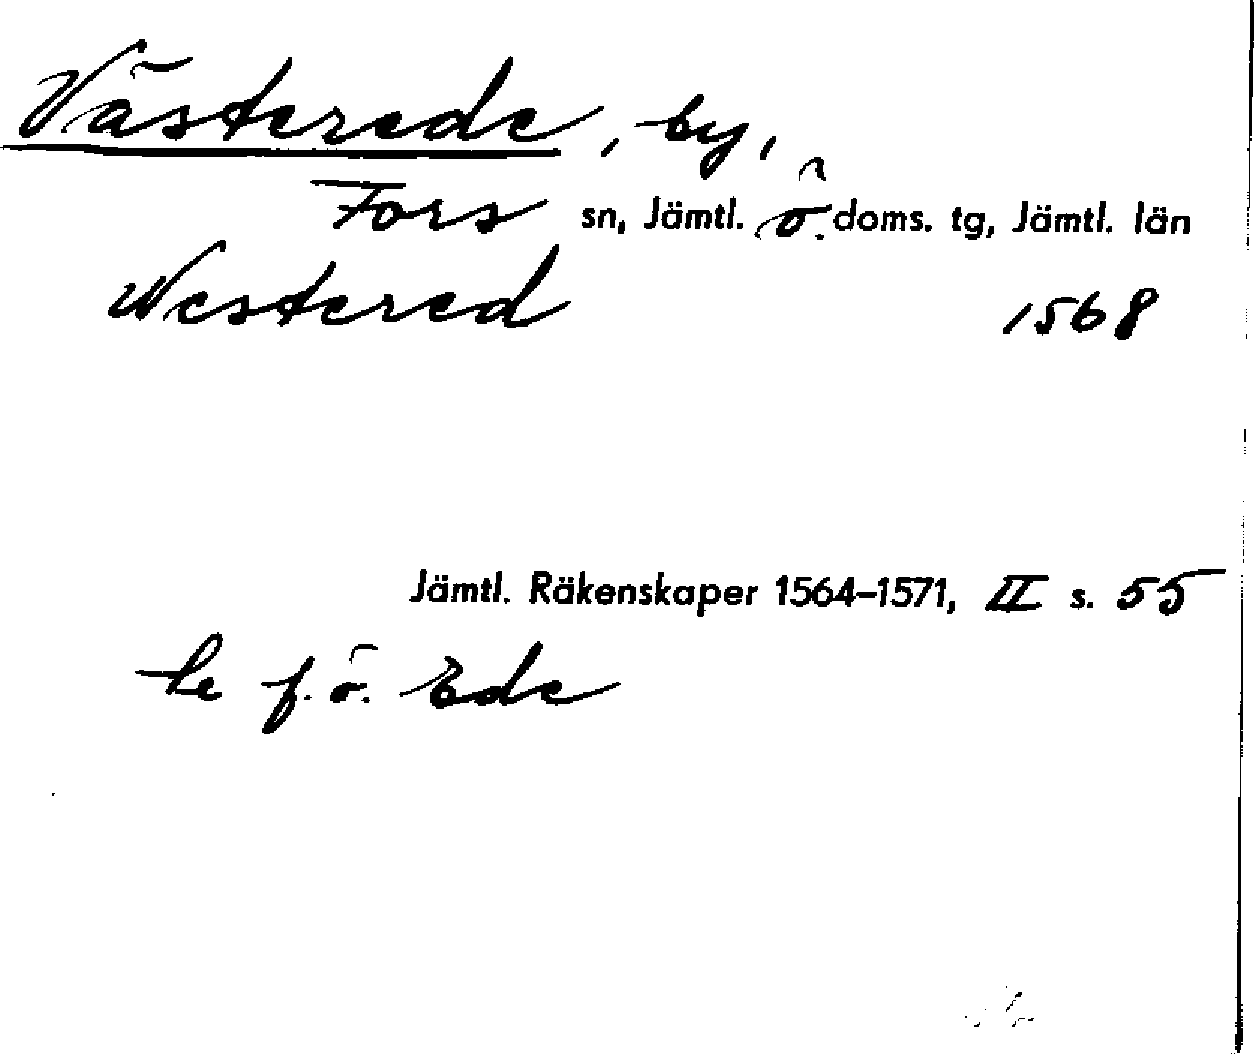 Västerede, by,
Fors sn, Jämtl. ö. doms. tg, Jämtl. län
Westered 1568
Jämtl. Räkenskaper 1564–1571, II s. 55
Se f. ö. Ede